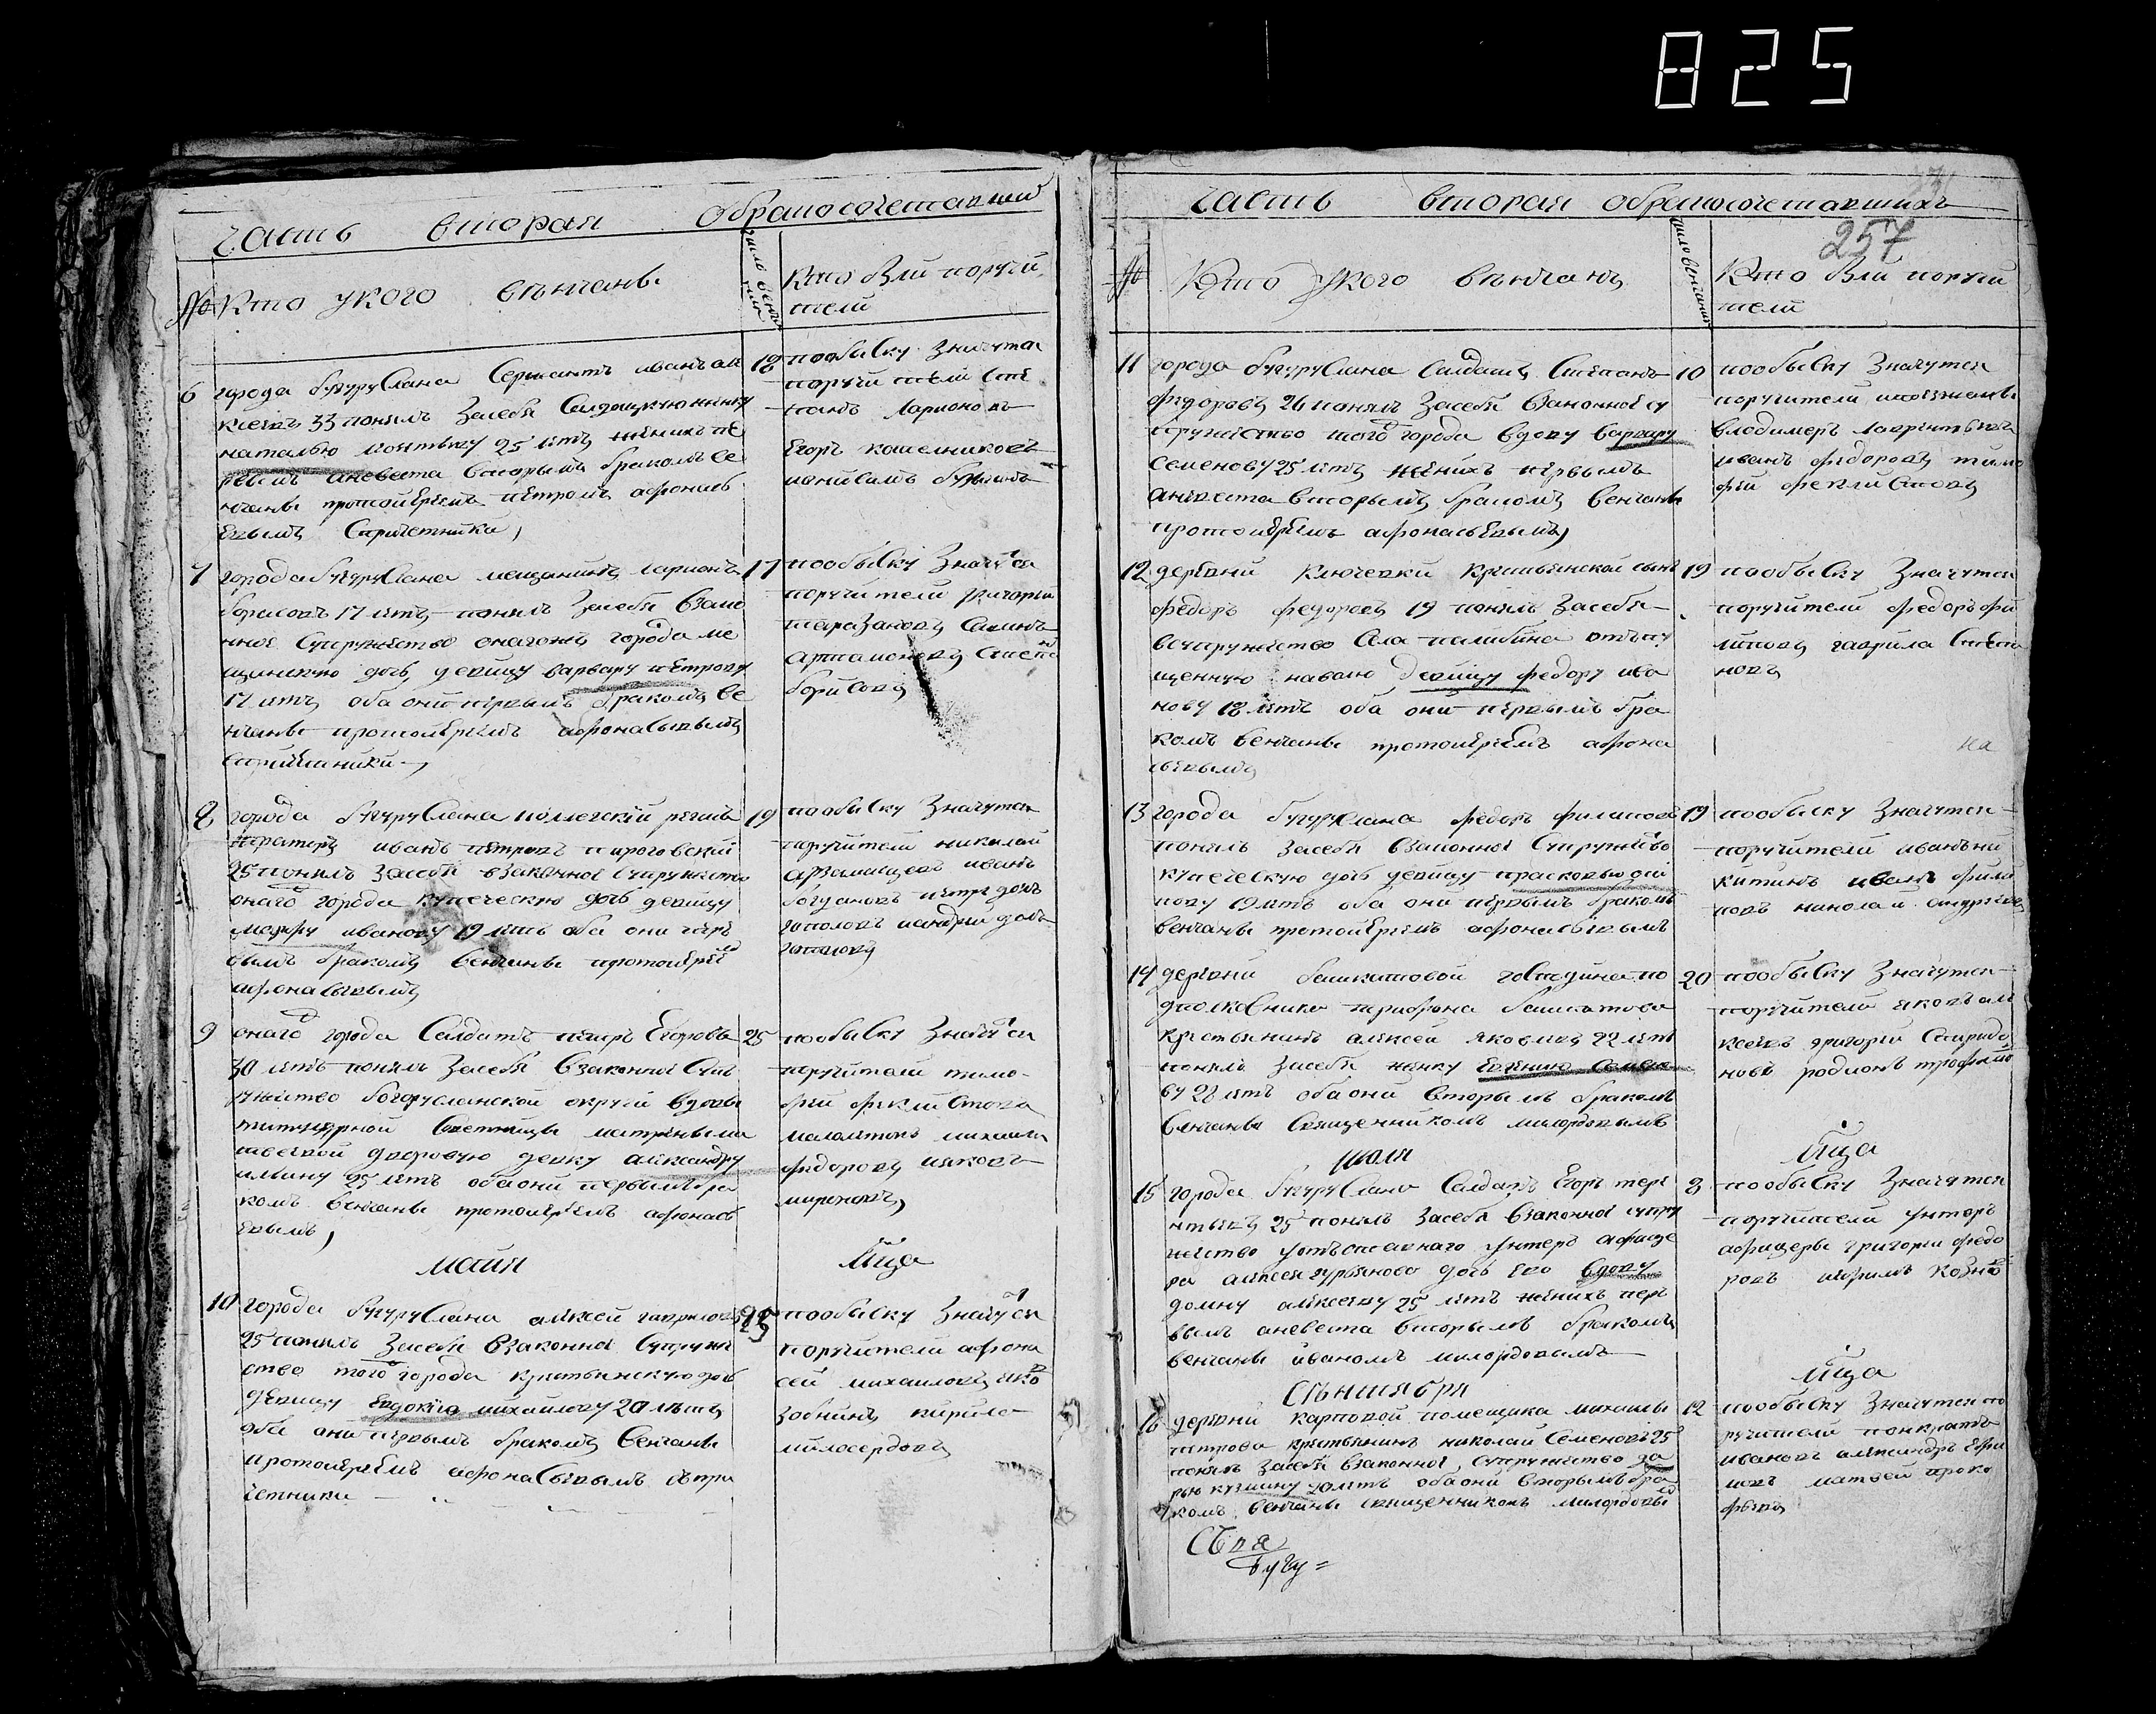 825
часть вторая обракосочетавши
№
Кто укого венчаны
число венча
ния
Кто были поручи
тели
6
города бугуруслана Сержантъ иванъ але
ксеевъ 33 понялъ засебя Салдацкую жинку
наталью 25 летъ женихъ пе
рвымъ аневеста вторымъ бракомъ ве
нчаны протоиереемъ петромъ афонась
евымъ Спричетники
18
пообыску значутся
поручители Сте
панъ Ларионовъ
Егоръ кошелниковъ
7
города бугуруслана мещанинъ ларионъ
борисовъ 17 летъ понялъ засебя взако
нное Супружество онагожъ города ме
щанскую дочь девицу варвару петрову
17 летъ оба они первымъ бракомъ ве
нчаны протоиереемъ афонасьевымъ
17
пообыску значутся
поручители григории
таразановъ
артамоновъ Степанъ
борисовъ
8
города бугуруслана колежский регис
траторъ иванъ петровъ пироговский
25 понялъ засебя взаконное супружество
онаго города купеческую дочь девицу
марфу иванову 19 летъ оба они пер
вымъ бракомъ венчаны протоиерее
афонасьевымъ
19
пообыску значутся
поручители николай
арзамацевъ иванъ
богдановъ петръ долъ
гополовъ иандрей долъ
гополовъ
9
онаго города Салдатъ петръ Егоровъ
30 летъ понялъ засебя взаконное Суп
ружество богорусланской округи вдовы
титулярной Советницы матрены
дворовую девку александру
ильину 25 летъ оба они первымъ бра
комъ венчаны протоиереемъ афонась
евымъ
25
пообыску значутся
поручители тимо
фей феклистовъ
михаила
федоровъ ияковъ
мироновъ
майя
10
города бугуруслана алексей гаврилов
25 понялъ засебя взаконное Супруже
ство того города крестьянскую дочь
девицу Евдокию михайлову 20 летъ
оба они первымъ бракомъ венчаны
протоиереемъ афонасьевымъ спри
четники
25
пообыску значутся
поручители афона
сей михаиловъ яко
зобнинъ кирило
милосердовъ
часть вторая обракосочетавшихъ
257
№
Кто укого венчанъ
число венчания
Кто были поручи
тели
11
города бугуруслана Салдатъ Степанъ
федоровъ 26 понялъ засебя взаконное су
пружество того города вдову варвару
Семенову 25 летъ женихъ первымъ
аневеста вторымъ бракомъ венчаны
протоиереемъ афонасьевымъ
10
пообыску значутся
поручители
владимеръ лаврентьевъ
иванъ федоровъ тимо
фей феклистовъ
12
деревни Ключевки крестьянской сынъ
федоръ федоровъ 19 понялъ засебя
всупружество Села палибина отпу
щенную наволю девицу федору ива
нову 18 летъ оба они первымъ бра
комъ венчаны протоиереемъ афона
сьевымъ
19
пообыску значутся
поручители федоръ фи
липовъ гаврила Степа
новъ
на
13
города бугуруслана федоръ филипов
понялъ засебя взаконное Супружество
купеческую дочь девицу прасковью
19 летъ оба они первымъ бракомъ
венчаны протоиереемъ афонасьевымъ
19
пообыску значутся
поручители иванъ ни
китинъ иванъ фили
повъ николай андреевъ
14
деревни башкатовой господина по
дполковника трифона башкатова
крестьянинъ алексей яковлевъ 22 летъ
понялъ засебя женку Евгению Семено
ву 28 летъ оба они вторымъ бракомъ
венчаны священникомъ милордовымъ
20
пообыску значутся
поручители яковъ але
ксеевъ григорий Спиридо
новъ родионъ трофимо
июля
15
города бугуруслана Салдатъ Егоръ тере
нтьевъ 25 понялъ засебя взаконное супру
жество уотставнаго унтеръ афице
ра алексея гурьянова дочь его вдову
домну алексееву 25 летъ женихъ пер
вымъ аневеста вторымъ бракомъ
венчаны иваномъ милордовымъ
8
пообыску значутся
поручители унтеръ
афицеры григорий федо
ровъ
Сентября
16
деревни карповой помещика михаилы
петрова крестьянинъ николай Семеновъ 25
понялъ засебя взаконное супружество да
рью кузмину 20 летъ оба они вторымъ бра
комъ венчаны священникомъ милордовы
12
пообыску значутся по
ручители понкратъ
ивановъ александръ Ефи
мовъ матвей проко
фьевъ
Бугу=